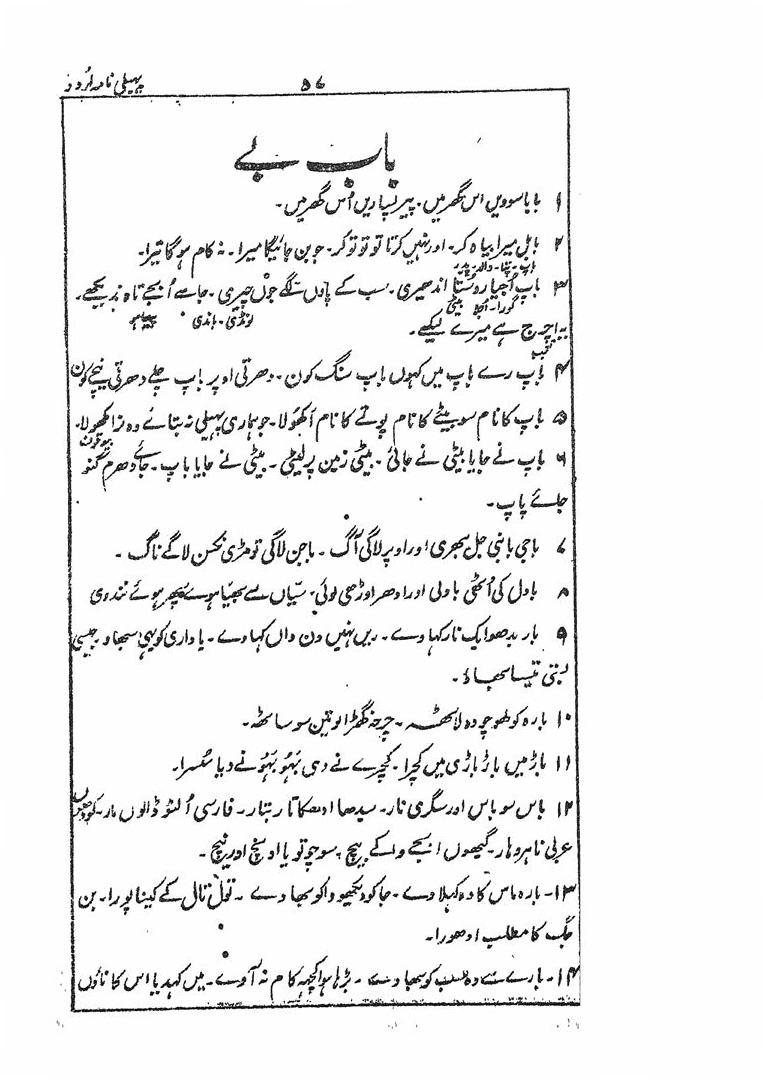 پہیلی نامہ اُردو
۵۷
باب بے
۱ بابا سوویں اس گھر میں۔ پیر پسپاریں اُس گھر میں۔
۲ بابل میرا بیاہ کر۔ اور نہیں کرتا تو تو تو کر۔ جوبن جائیگا میرا۔ نہ کام ہو گا تیرا۔
باپ۔ پتا۔ والد۔ پدر
۳ باپ اُجیارہ ستا اندھیری۔ سب کے پاوں لگے جوں چیری۔ جا سے اُبجے تاہ نہ دیکھے۔
گورا۔ اُجلا بیٹی لونڈی۔ باندی
یہ اچرج ہے میرے لیکھے۔
تعجب
۴ باپ رے باپ میں کہوں باپ سنگ کون۔ دھرتی اوپر باپ چلے دھرتی نیچے کون
۵ باپ کا نام سو بیٹے کا نام پوتے کا نام آکھولا۔ جو ہماری پہیلی نہ بتائے وہ نرا کھولا۔
بیوقوف
۶ باپ نے جایا بیٹی نے جائی۔ بیٹی زمین پر لیٹی۔ بیٹی نے جایا باپ۔ جائے دھرم گنو
جائے پاپ۔
۷ باجی بانبی جل بھری اور اوپر لاگی آگ۔ باجن لاگی تومڑی نکسن لاگے ناگ۔
۸ بادل کی اُٹھی باولی اور ادھر اوڑھی لوئی۔ سیّاں سے بھیّا ہوے پھر ہوئے نندوی
۹ بار بدھو ایک نار کہاوے۔ ریں نہیں دن واں کہاوے۔ یا واری کو یہی سبھاو۔ جیسی
بنتی تیسا سبھاؤ۔
۱۰ بارہ کوٹھو چودہ لاٹھ۔ چرخہ گھڑا لو تین سو ساٹھ۔
۱۱ باڑ میں باڑ باڑی میں کچرا۔ کچرے نے دی بہو بہو نے دیا سُسرا۔
۱۲ باس سو باس اور سگری نار۔ سیدھا ادھکا تار بتار۔ فارسی اُلٹو ڈالوں مار۔
عربی ناہر وہار۔ گیھوں ابجے واکے بیچ۔ سوچو تو یا اونچ اور نیچ۔
۱۳۔ بارہ ماس کا وہ کہلاوے۔ جا کو دیکھو وا کو سبھاوے۔ تول تال کے کینا پورا۔ بن
جگ کا مطلب ادھورا۔
۱۴۔ بارے سے وہ سب کو بھاوے۔ بڑھا ہوا کچھ کام نہ آوے۔ میں کہدیا اس کا ناؤں